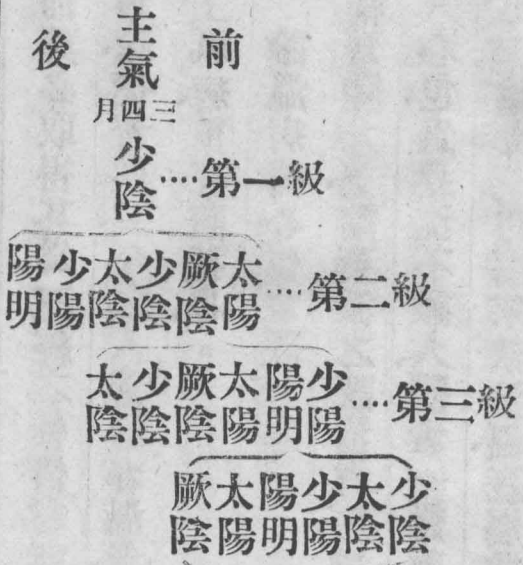 後 主氣 前
月四三
少陰....第一級
陽明 少陽 太陰 少陰 厥陰 太陽....第二級
太陰 少陰 厥陰 太陽 陽明 少陽....第三級
厥陰 太陽 陽明 少陽 太陰 少陰